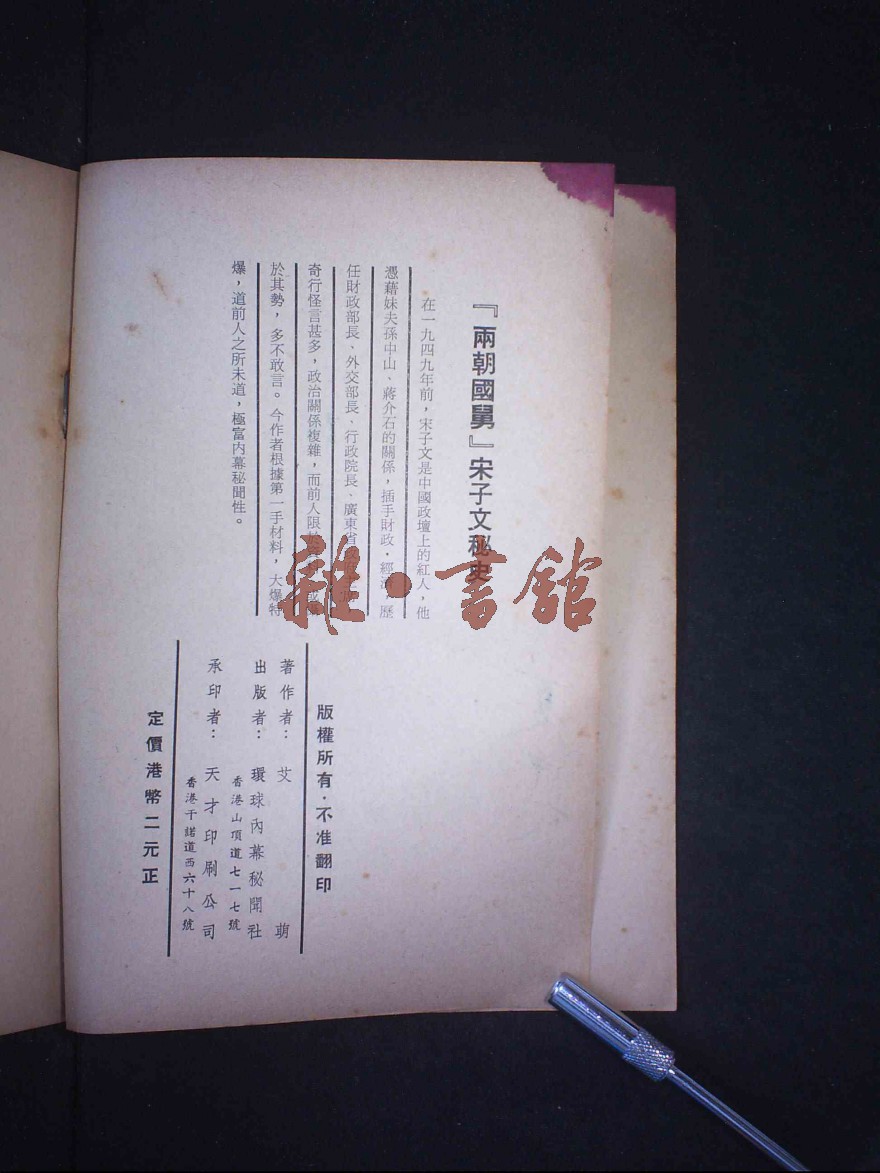 『兩朝國舅』宋子文秘史
在一九四九年前，宋子文是中國政壇上的紅人，他
憑藉妹夫孫中山、蔣介石的關係，插手財政、經濟，歷
任財政部長、外交部長、行政院長、廣東省
奇行怪言甚多，政治關係複雜，而前人限
於其勢，多不敢言。今作者根據第一手材料，大爆特
爆，道前人之所未道，極富內幕秘聞性。
版權所有·不准翻印
著作者：艾萌
出版者：環球內幕秘聞社
香港山頂道七一七號
承印者：天才印刷公司
香港干諾道西六十八號
定價港幣二元正
雜·書館